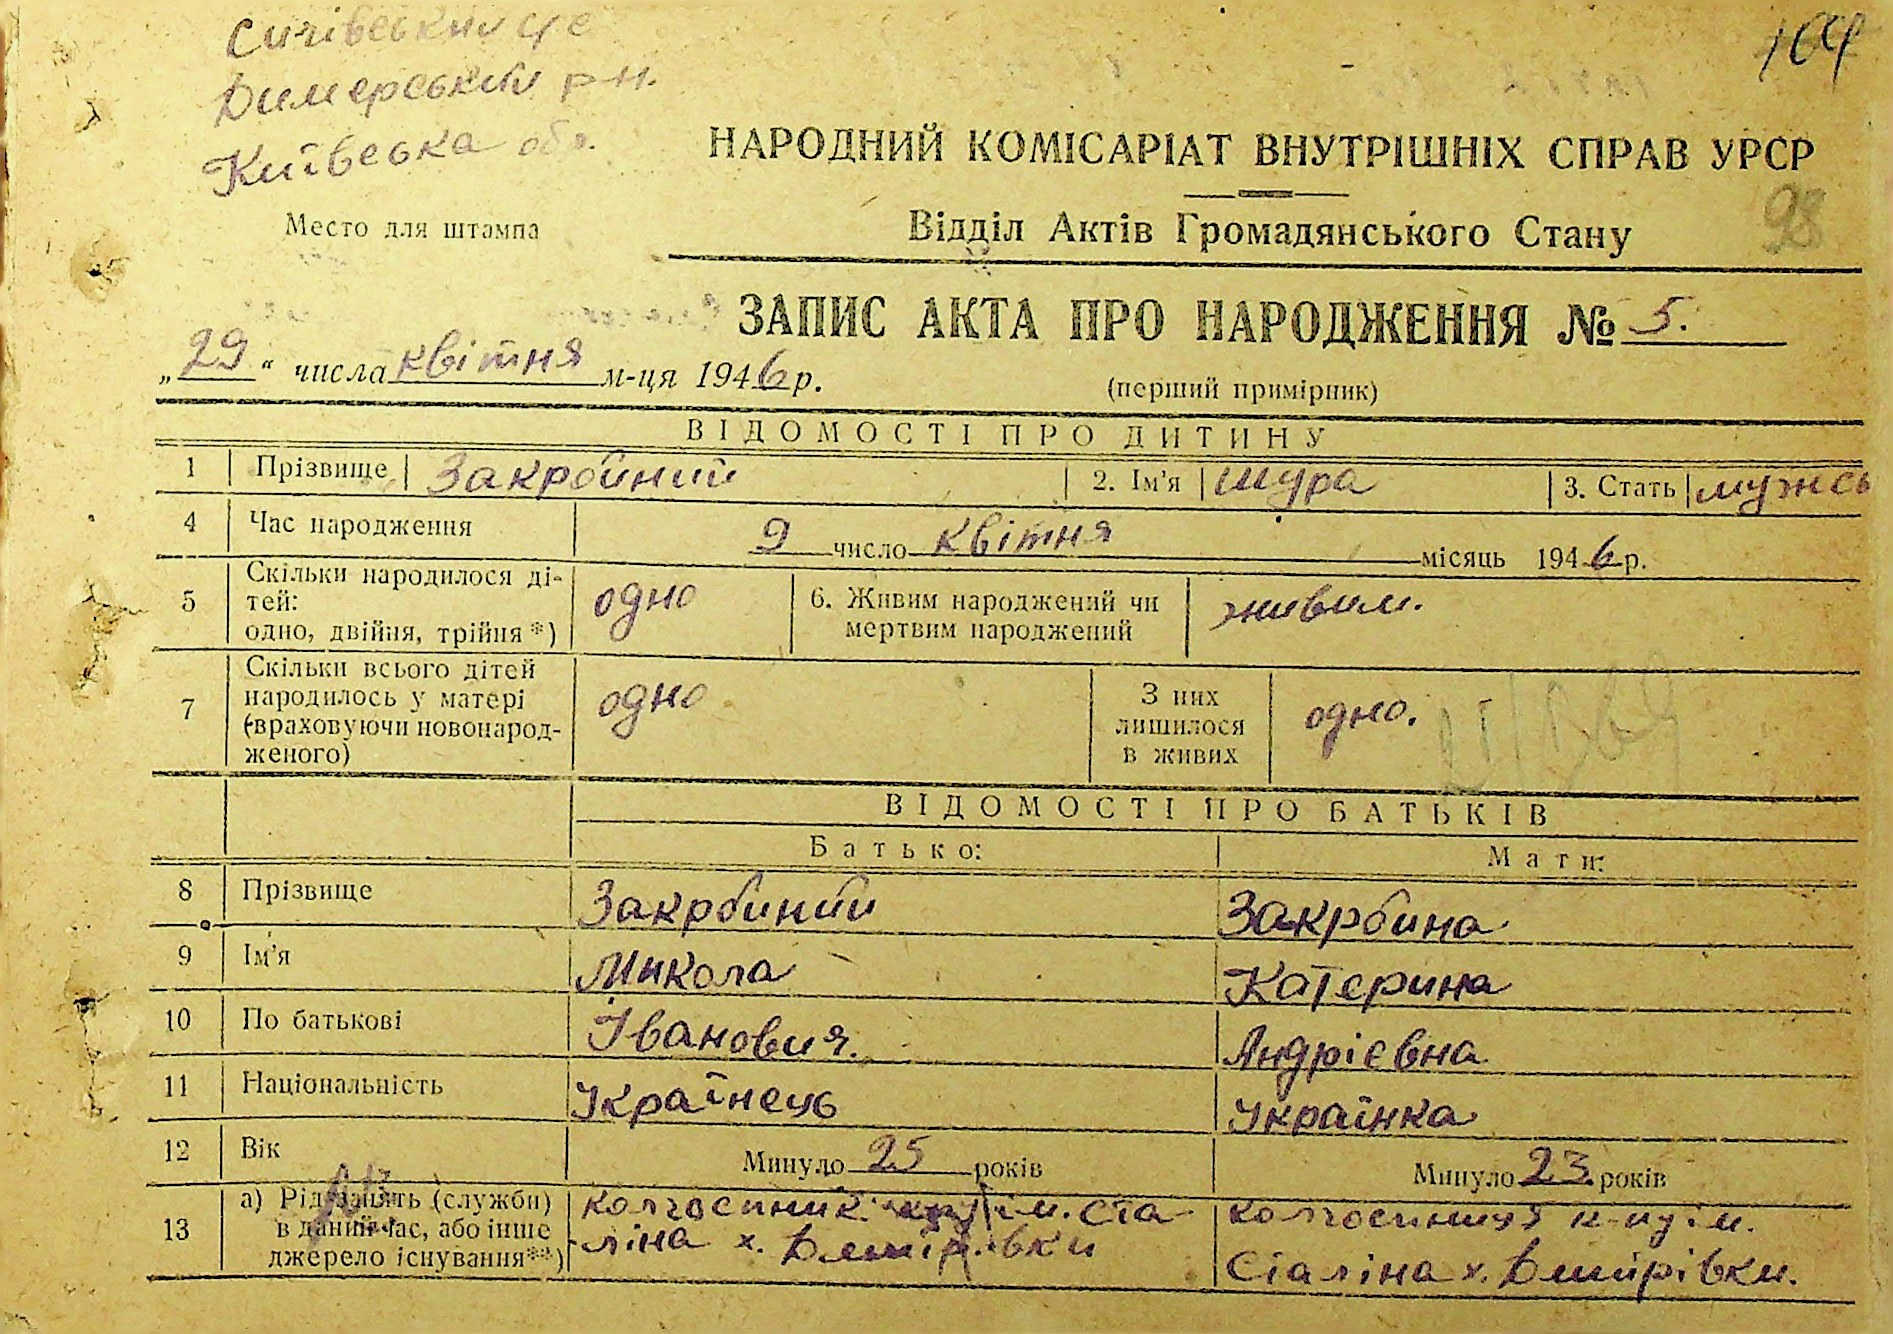 Димерський р-н.
Київська обл.
104
НАРОДНИЙ КОМІСАРІАТ ВНУТРІШНІХ СПРАВ УРСР
98
Место для штампа
Відділ Актів Громадянського Стану
ЗАПИС АКТА ПРО НАРОДЖЕННЯ № 5.
„29“ числа квітня м-ця 1946 р.
(перший примірник)
ВІДОМОСТІ ПРО ДИТИНУ
1 Прізвище Закрбиний 2. Ім'я Шура 3. Стать мужсь
4 Час народження 9 число квітня місяць 1946 р.
5 Скільки народилося ді-
тей:
одно, двійня, трійня *) одно
6. Живим народжений чи
мертвим народжений живим.
7 Скільки всього дітей
народилось у матері
(враховуючи новонарод-
женого) одно
З них
лишилося
в живих одно.
ВІДОМОСТІ ПРО БАТЬКІВ
Батько: Мати:
8 Прізвище Закрбиний Закрбина
9 Ім'я Микола Катерина
10 По батькові Іванович. Андрієвна
11 Національність Українець Українка
12 Вік Минуло 25 років Минуло 23 років
13 а) Рід занять (служби)
в даний час, або інше
джерело існування**)
колгоспник ім. Ста
-ліна х. Дмирівки
колгоспниця к-пу ім.
Сталіна х. Дмитрівки.